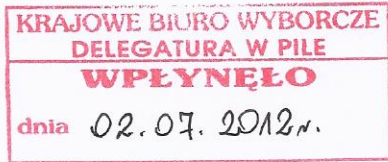 KRAJOWE BIURO WYBORCZE
DELEGATURA W PILE
WPŁYNĘŁO
dnia 02.07.2012r.